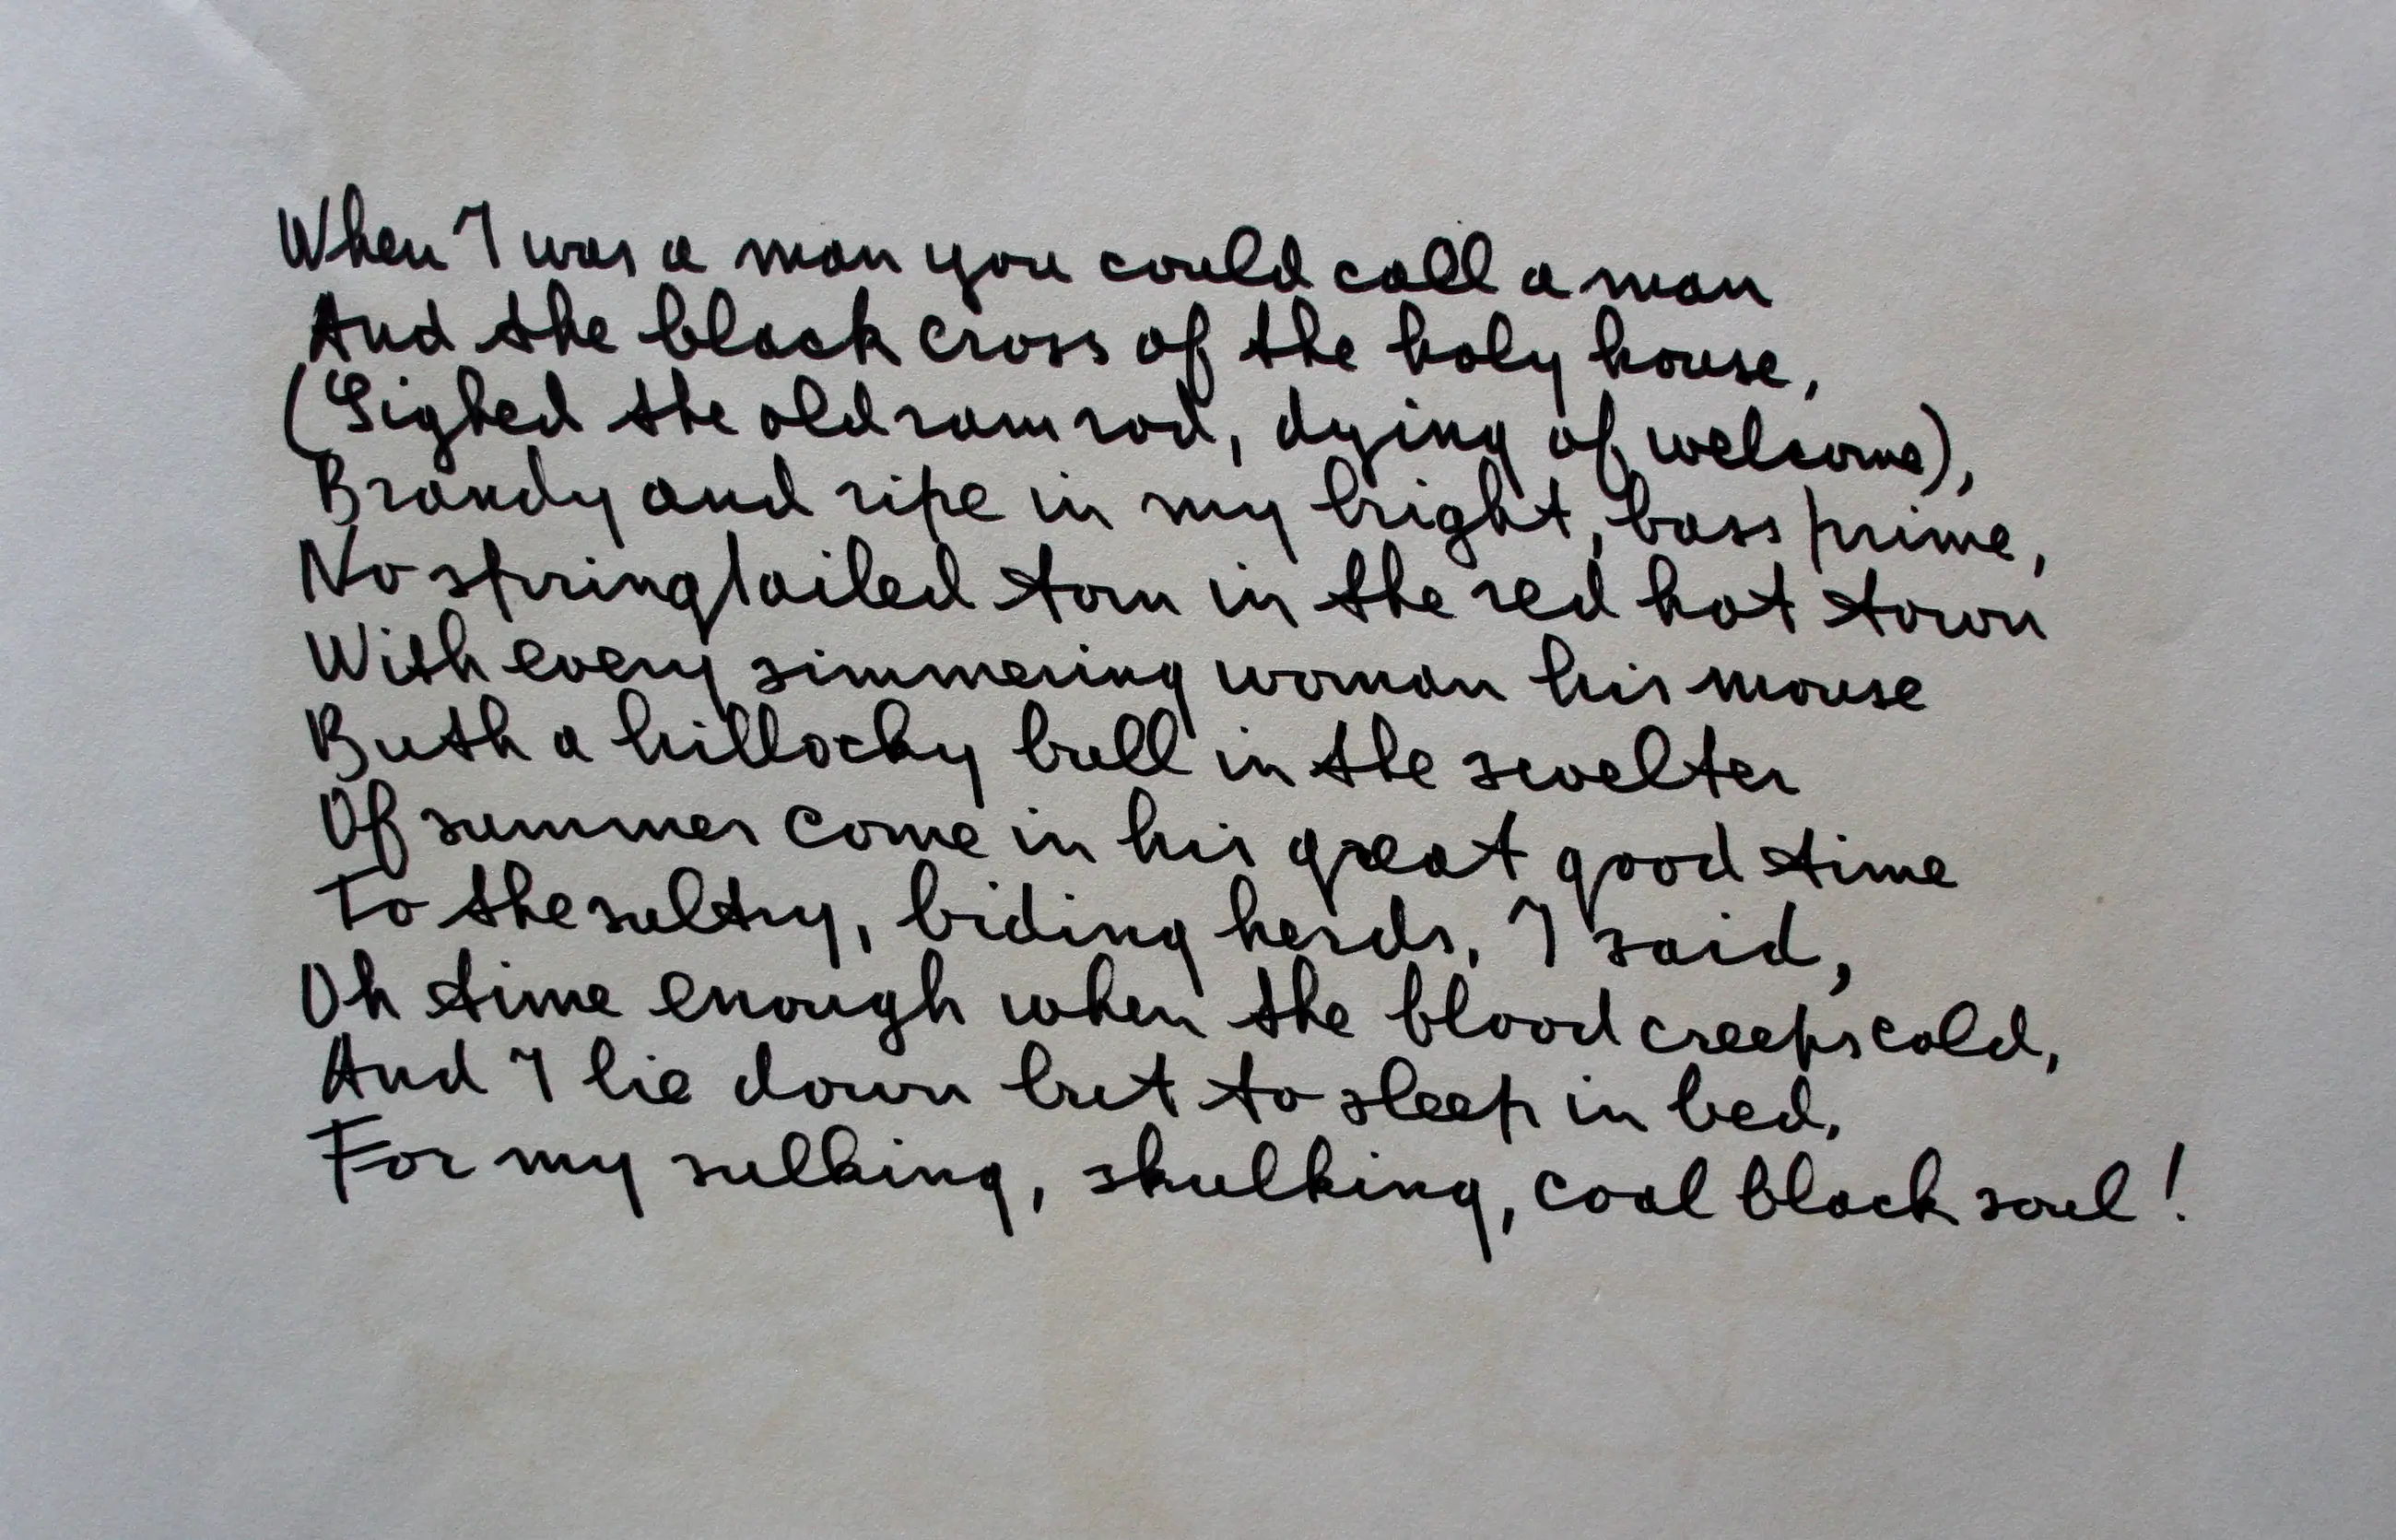 When I was a man you could call a man
And the black cross of the holy house,
(Sighed the old ram rod, dying of welcome),
Brandy and ripe in my bright, bass prime,
No springtailed tom in the red hot town
With every simmering woman his mouse
But a hillocky bull in the swelter
Of summer come in his great good time
To the sultry, biding herds, I said,
Oh time enough when the blood creeps cold,
And I lie down but to sleep in bed,
For my sulking, skulking, coal black soul!